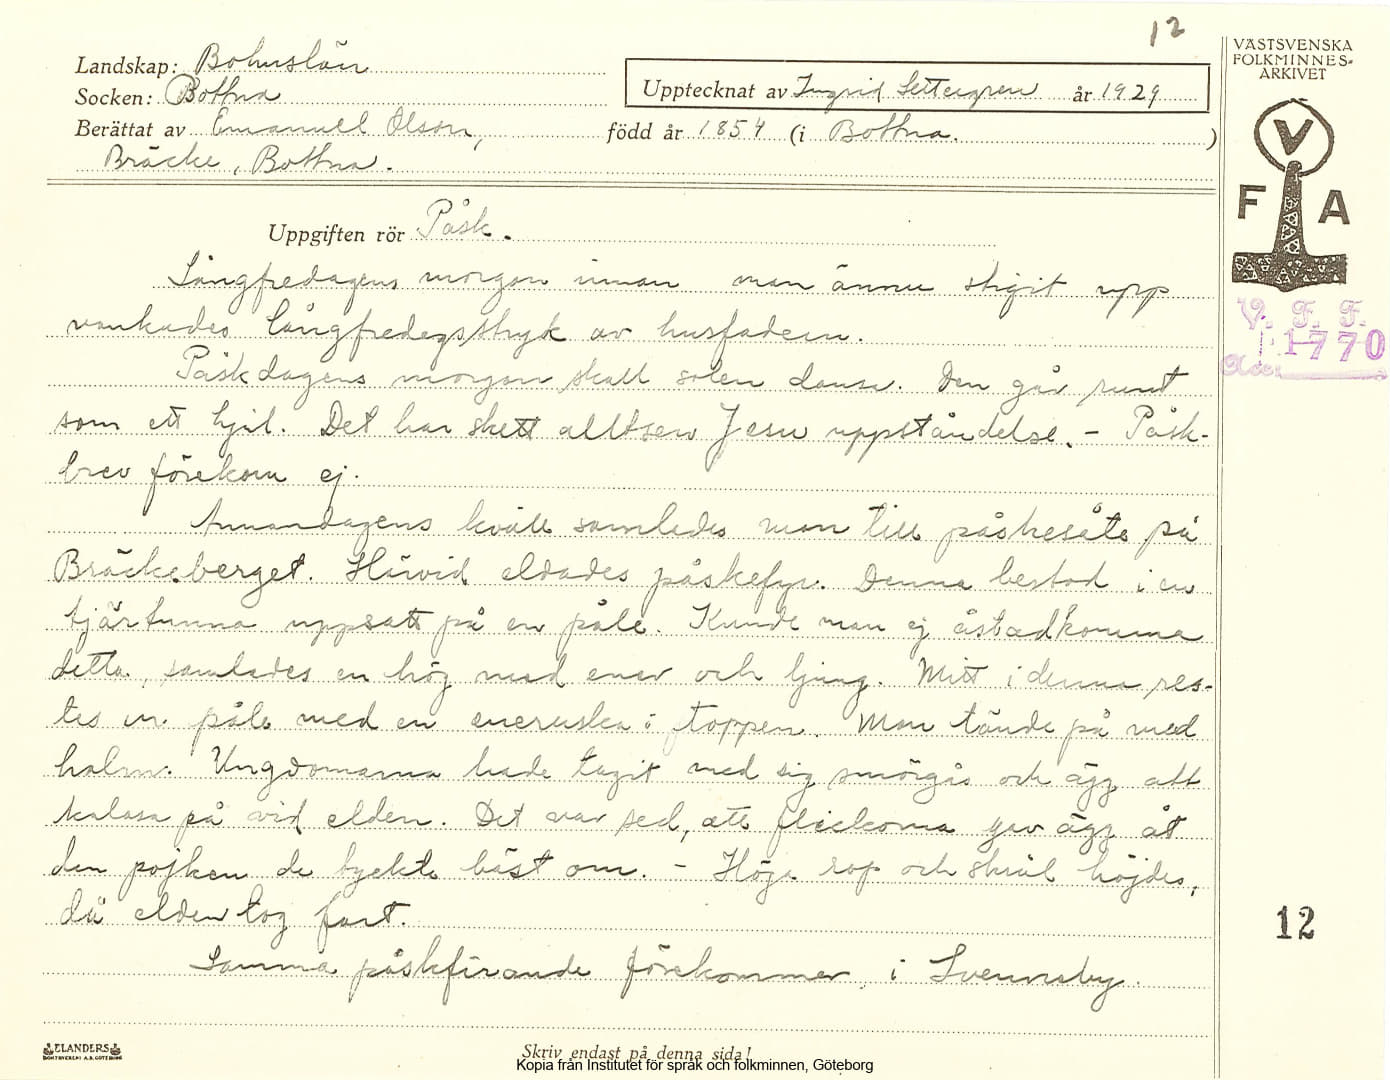 12
VÄSTSVENSKA
FOLKMINNES-
ARKIVET
Landskap: Bohuslän
Upptecknat av Ingrid Settergren år 1929
Socken: Bottna
Berättat av Emanuel Olson, född år 1854 (i Bottna. )
Bräcke, Bottna.
V
F A
Uppgiften rör Påsk.
V. F. F.
1770
Acc.
Långfredagens morgon innan man ännu stigit upp
vankades långfredagsstryk av husfadern.
Påskdagens morgon skall solen dansa. Den går runt
som ett hjul. Det har skett alltsen Jesu uppståndelse. - Påsk-
brev förekom ej.
Annandagens kväll samlades man till påskesäte på
Bräckeberget. Härvid eldades påskefyr. Denna bestod i en
tjärtunna uppsatt på en påle. Kunde man ej åstadkomma
detta, samlades en hög med ener och ljung. Mitt i denna res-
tes en påle med en eneruska i toppen. Man tände på med
halm. Ungdomarna hade tagit med sig smörgås och ägg att
kalasa på vid elden. Det var sed, att flickorna gav ägg åt
den pojken de tyckte bäst om. - Höga rop och skrål höjdes,
då elden tog fart.
12
Samma påskfirande förekommer i Svenneby.
ELANDERS
BOKTRYCKERI A.B. GÖTEBORG
Skriv endast på denna sida!
Kopia från Institutet för språk och folkminnen, Göteborg